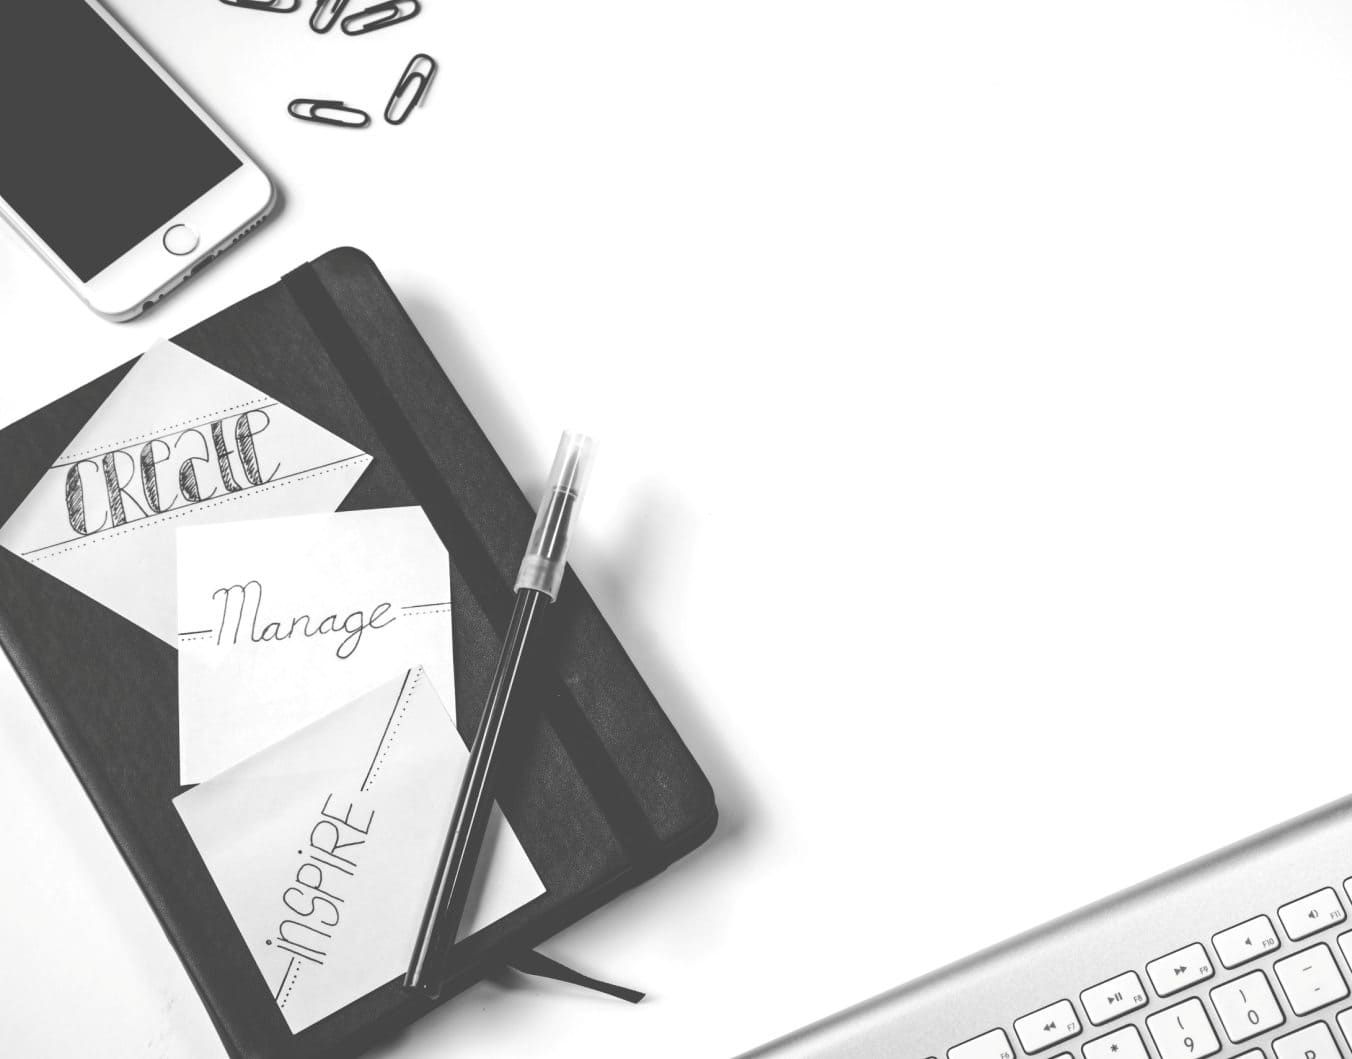 CReate
Manage
iNSPiRE
F6
F7
F8
F9
F10
F11
*
(
9
)
0
_
-
P